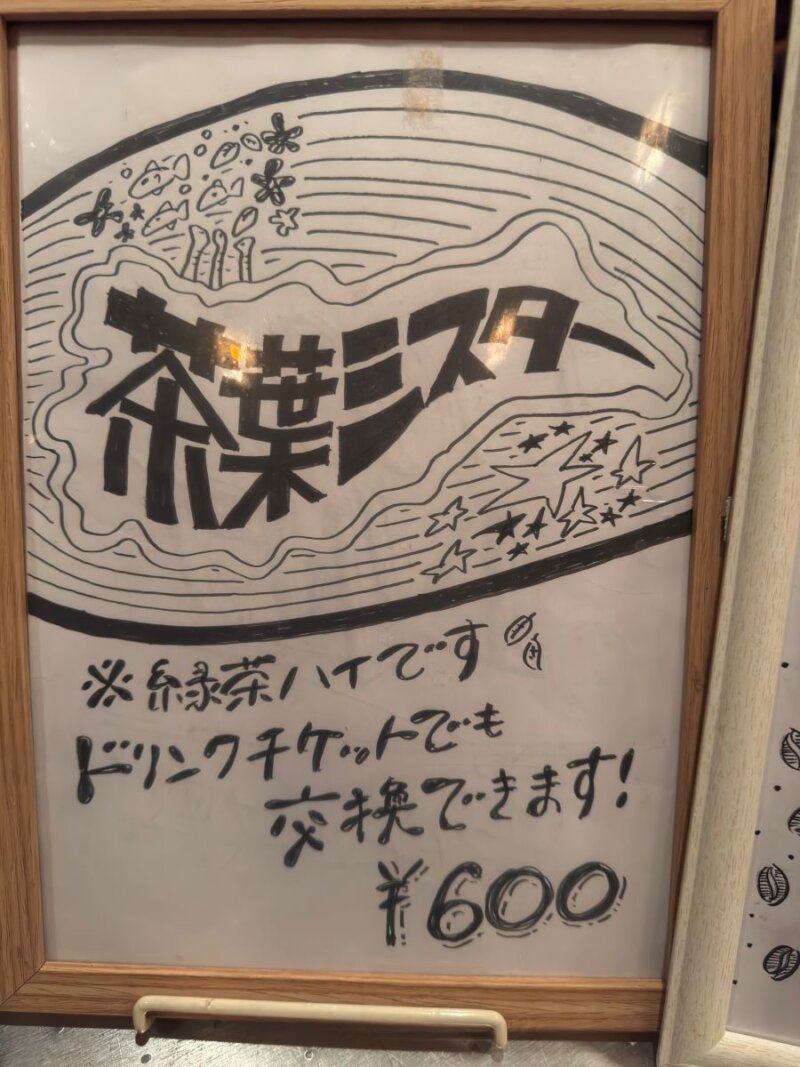 茶葉ミスター
※緑茶ハイです
ドリンクチケットでも
交換できます!
¥600